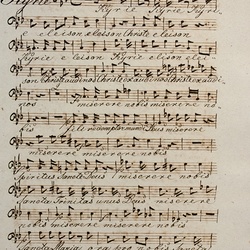 Kyrie Kyrie Kyrie
e eleison eleison Christe eleison
Kyrie e leison Kyrie eleison elei
son Christe audi nos Christe exaudi
nos miserere nobis miserere no
bis Fili redemptor mundi Deus miserere
miserere miserere nobis
Spiritus Sancte Deus miserere nobis
Sancta Trinitas unus Deus miserere
miserere nobis miserere nobis
Sancta Maria ora pro nobis Sancta